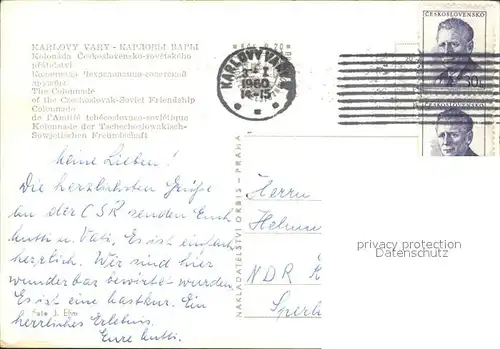 KARLOVY VARY - КАРЛОВЫ ВАРЫ
Kolonáda Československo-sovětského
přátelství
Колоннада Чехословацко-советской
дружбы
The Colonnade
of the Czechoslovak-Soviet Friendship
Colonnade
de l'Amitié tchécoslovaco-soviétique
Kolonnade der Tschechoslowakisch-
Sowjetischen Freundschaft
KARLOVY VARY
1960
14-15
ČESKOSLOVENSKO
30h
Meine Lieben!
Die herzlichsten Grüße
an der ČSR senden Euch
Mutti u. Vati. Es ist einfach
herrlich. Wir sind hier
wunderbar bewirtet wurden.
Es ist eine Mastkur. Ein
herrliches Erlebnis.
Eure Mutti.
Foto J. Ehm
NAKLADATELSTVÍ ORBIS - PRAHA
Herrn
Helmu
NDR
Sperl
privacy protection
Datenschutz